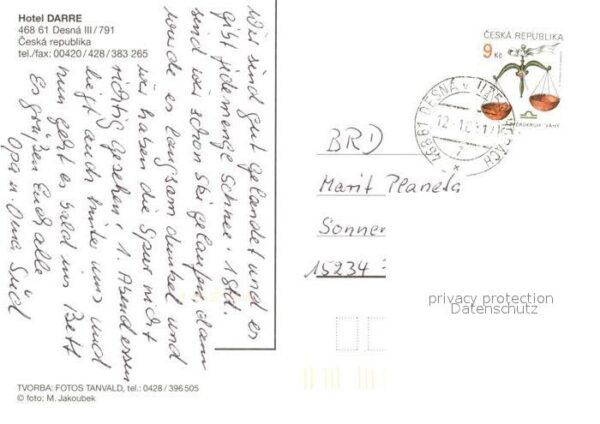 Hotel DARRE
468 61 Desná III/791
Česká republika
tel./fax: 00420/428/383 265
Wir sind gut gelandet und es
gibt jedemenge Schnee. 1 Std.
sind wir schon Ski gelaufen, dann
wurde es langsam dunkel und
wir haben die Spur nicht
richtig gesehen. 1. Abendessen
liegt auch hinter uns und
nun geht es bald ins Bett
Es grüßen Euch alle
Opa u. Oma Süd
TVORBA: FOTOS TANVALD, tel.: 0428/396 505
© foto: M. Jakoubek
ČESKÁ REPUBLIKA
9 Kč
VÁHY
468 61 DESNÁ v
BRD
Marit Planeta
Sonnen
15234
privacy protection
Datenschutz